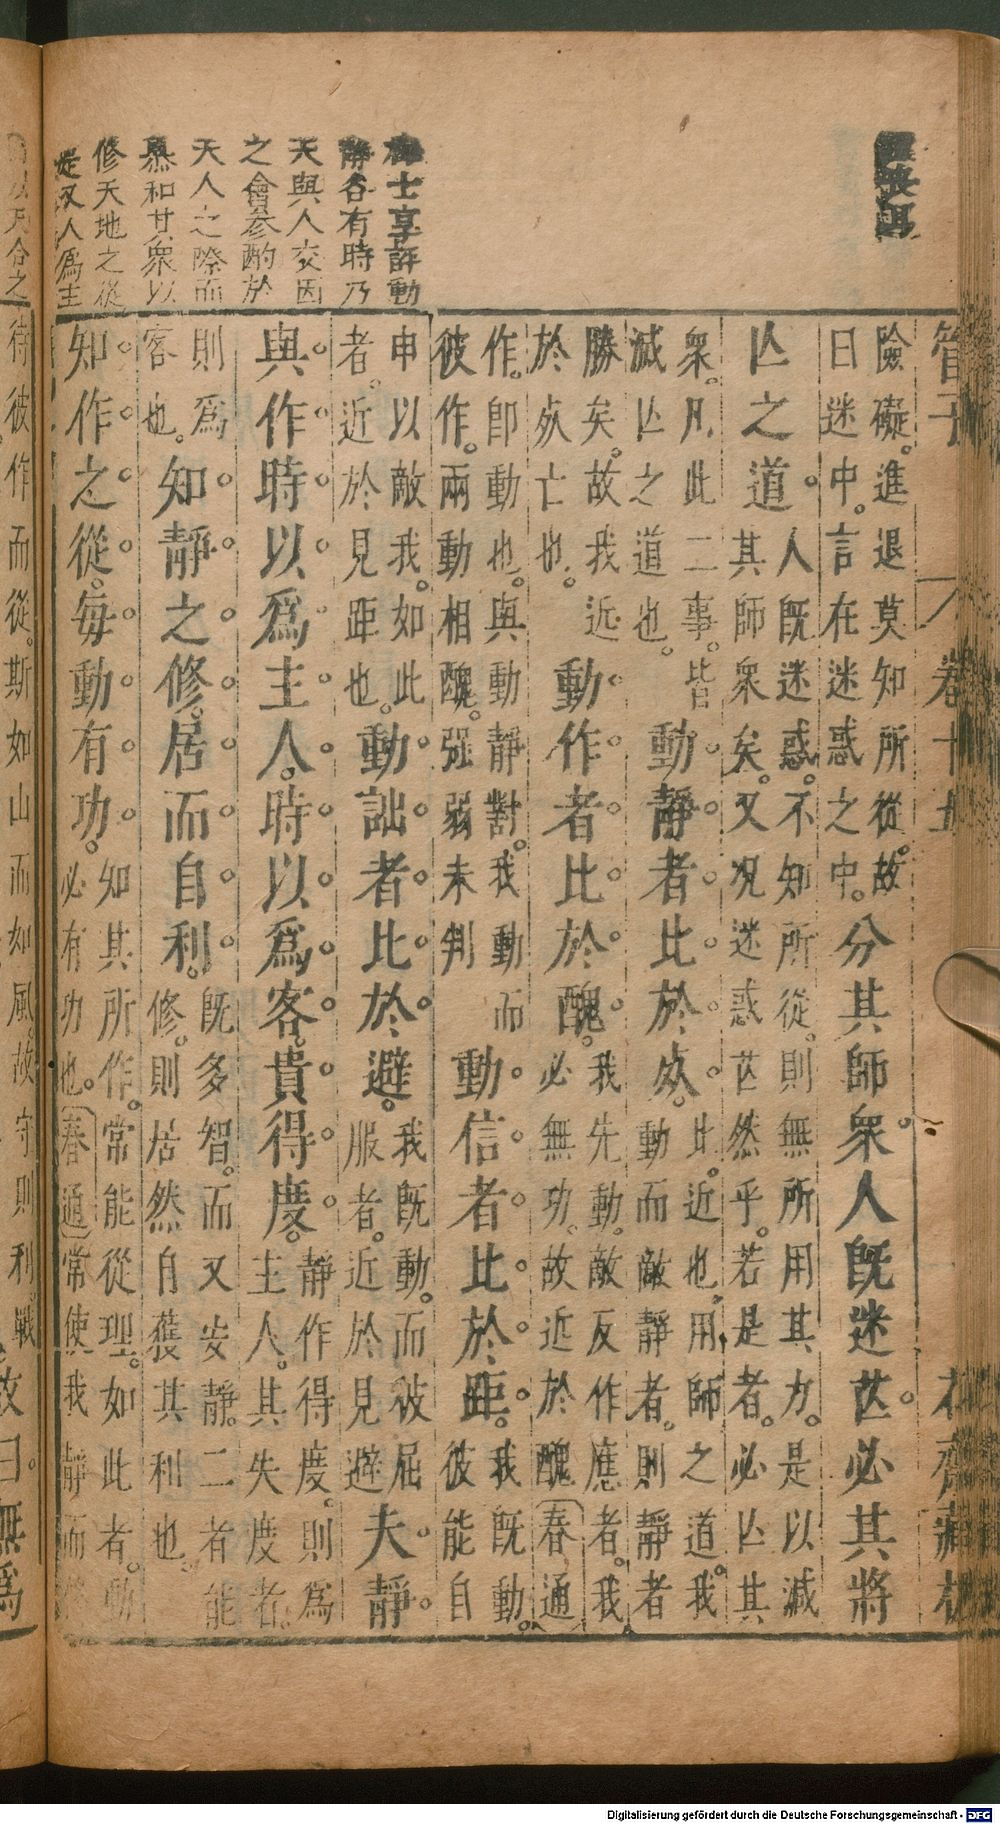 管子 卷十五 花齋藏板
險礙。進退莫知所從。故
曰迷中。言在迷惑之中。
分其師衆。人既迷芒。必其將
亾之道。
人既迷惑。不知所從。則無所用其力。是以滅
其師衆矣。又況迷惑芒然乎。若是者。必亾其
衆。凡此二事。皆
滅亾之道也。
動靜者比於㱙。
比。近也。用師之道。我
動而敵靜者。則靜者
勝矣。故我近
於㱙亡也。
動作者比於醜。
我先動。敵反作應者。我
必無功。故近於醜 春通
作。即動也。與動靜對。我動而
彼作。兩動相醜。强弱未判
動信者比於距。
我既動。
彼能自
申以敵我。如此
者。近於見距也。
動詘者比於避。
我既動。而彼屈
服者。近於見避
夫靜
與作。時以爲主人。時以爲客。貴得度。
靜作得度。則爲
主人。其失度者。
則爲
客也。
知靜之修。居而自利。
既多智。而又安靜。二者能
修。則居然自獲其利也。
知作之從。每動有功。
知其所作。常能從理。如此者。動
必有功也。 春通 常使我靜而
士享評動
靜各有時乃
天與人交因
之會參酌於
天人之際而
和其衆以
修天地之從
是又人爲主
天合之
待彼作而從。斯如山而如風。故守則利戰
故曰。無爲
Digitalisierung gefördert durch die Deutsche Forschungsgemeinschaft - DFG